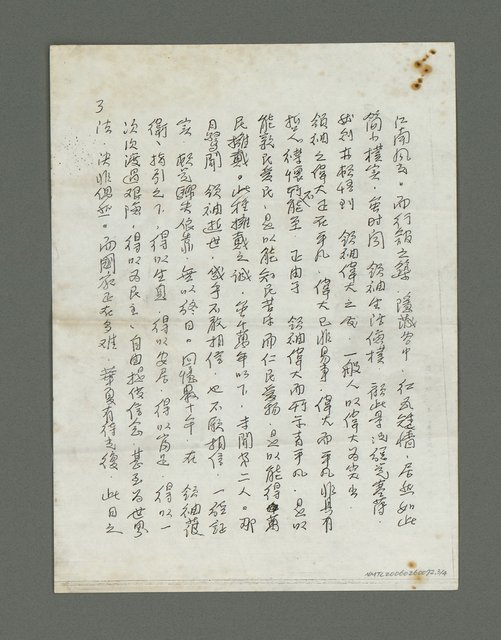 江南風光。而行館之築，隱藏谷中，紅瓦矮牆，居然如此
簡小樸實，當時聞 領袖生活儉樸，顧此景
始 悟到 領袖偉大之處，一般人以偉大為突出，
領袖之偉大正在平凡。偉大已非易事，偉大而平凡非具有
哲人襟懷不能至，正由于 領袖偉大而平凡，是以
能親民愛民，是以能知民苦而仁民愛物，是以能得萬
民擁戴。此種擁戴之誠，當千萬年以下，未聞第二人。那
日驚聞 領袖逝世，幾乎不敢相信，也不願相信，一經証
實 頓覺失依靠，無以終日。回憶數十年，在 領袖護
衛、指引之下，得以生息，得以安居，得以富足，得以一
次次渡過艱險，得以為民主、自由提供信念，甚至為世界
法，決非偶然。而國家正在多難，華夏有待光復，此日之
3
NMTL20060260072.3/4